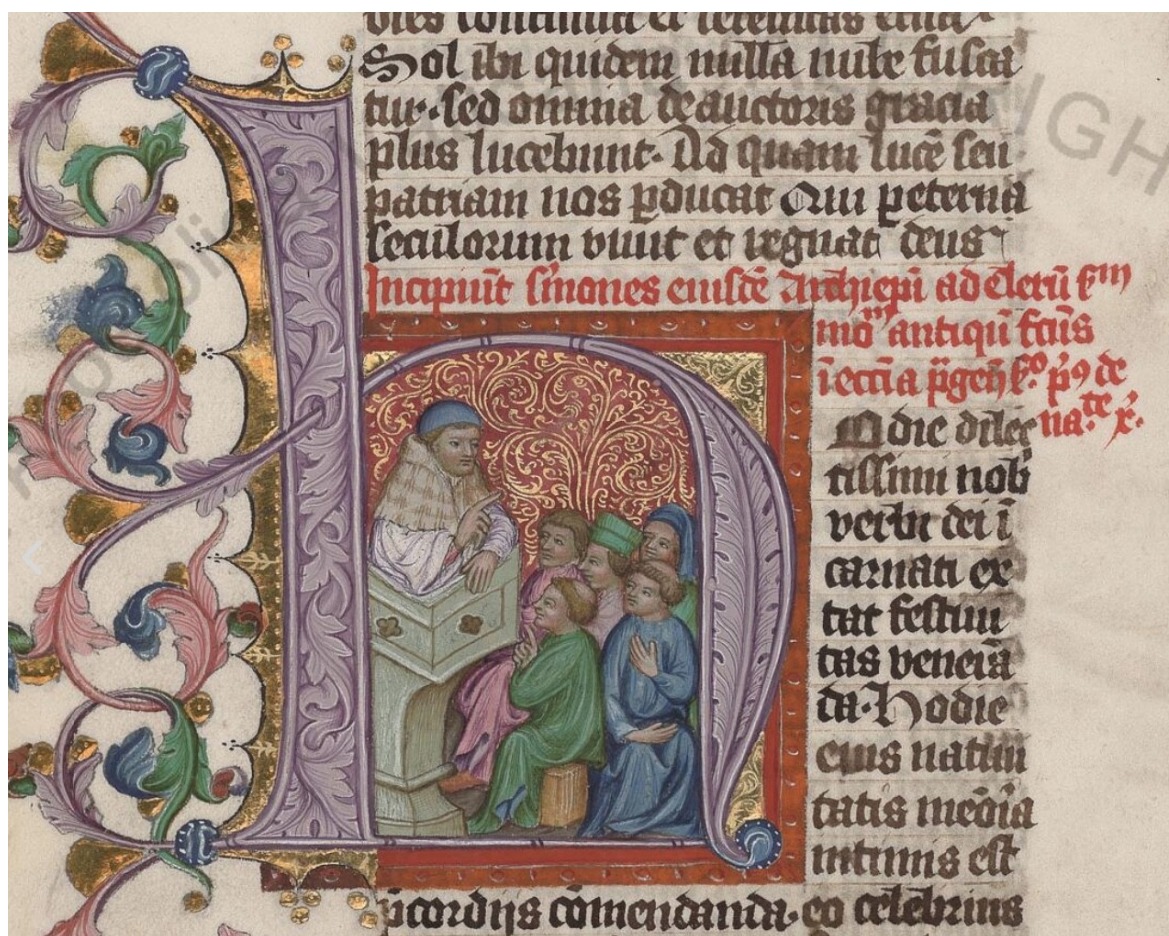 Sol ibi quidem nulla nube fusca
tur. sed omnia de auctoris gracia
plus lucebunt. Ad quam lucē seu
patriam nos ꝑducat Qui ꝑ eterna
seculorum vivit et regnat deus
Incipiūt s̄mones eiusdē Archiepī ad clerū
antiqū
odie dilec
tissimi nob̄
verbi dei ī
carnati ex
tat festiui
tas venerā
da. Hodie
eius natiui
tatis memōia
intimis est
p̄cordijs cōmendanda. eo celebrius